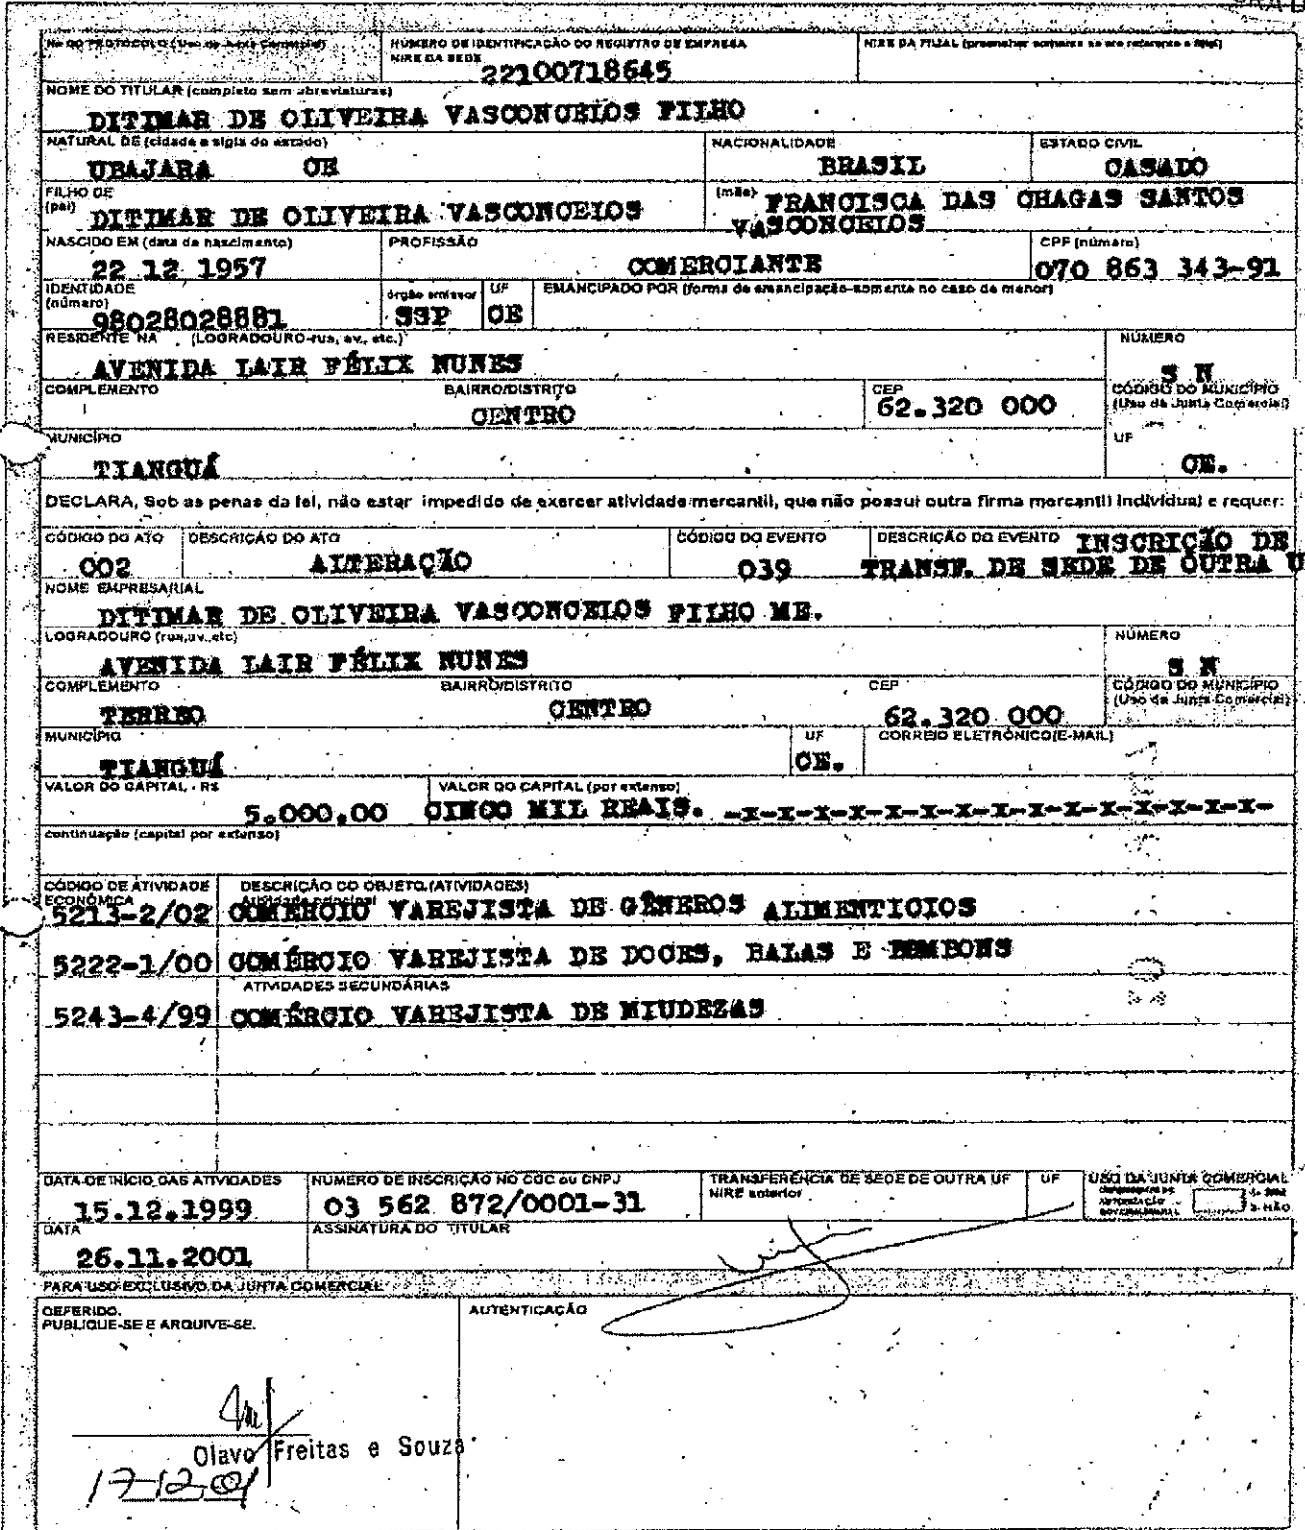 Nº DO PROTOCOLO (Uso da Junta Comercial)
NÚMERO DE IDENTIFICAÇÃO DO REGISTRO DE EMPRESA
NIRE DA SEDE
22100718645
NIRE DA FILIAL (preencher somente se ato referente a filial)
NOME DO TITULAR (completo sem abreviaturas)
DITIMAR DE OLIVEIRA VASCONCELOS FILHO
NATURAL DE (cidade e sigla do estado)
UBAJARA CE
NACIONALIDADE
BRASIL
ESTADO CIVIL
CASADO
FILHO DE
(pai) DITIMAR DE OLIVEIRA VASCONCELOS
(mãe) FRANCISCA DAS CHAGAS SANTOS
VASCONCELOS
NASCIDO EM (data de nascimento)
22 12 1957
PROFISSÃO
COMERCIANTE
CPF (número)
070 863 343-91
IDENTIDADE
(número)
98028028881
órgão emissor
SSP
UF
CE
EMANCIPADO POR (forma de emancipação-somente no caso de menor)
RESIDENTE NA (LOGRADOURO-rua, av., etc.)
AVENIDA LAIR FÉLIX NUNES
NÚMERO
S N
COMPLEMENTO
BAIRRO/DISTRITO
CENTRO
CEP
62.320 000
CÓDIGO DO MUNICÍPIO
(Uso da Junta Comercial)
MUNICÍPIO
TIANGUÁ
UF
CE.
DECLARA, Sob as penas da lei, não estar impedido de exercer atividade mercantil, que não possui outra firma mercantil individual e requer:
CÓDIGO DO ATO
002
DESCRIÇÃO DO ATO
ALTERAÇÃO
CÓDIGO DO EVENTO
039
DESCRIÇÃO DO EVENTO INSCRIÇÃO DE
TRANSF. DE SEDE DE OUTRA U
NOME EMPRESARIAL
DITIMAR DE OLIVEIRA VASCONCELOS FILHO ME.
LOGRADOURO (rua,av.,etc)
AVENIDA LAIR FÉLIX NUNES
NÚMERO
S N
COMPLEMENTO
TERREO
BAIRRO/DISTRITO
CENTRO
CEP
62.320 000
CÓDIGO DO MUNICÍPIO
(Uso da Junta Comercial)
MUNICÍPIO
TIANGUÁ
UF
CE.
CORREIO ELETRÔNICO(E-MAIL)
VALOR DO CAPITAL - R$
5.000,00
VALOR DO CAPITAL (por extenso)
CINCO MIL REAIS. -x-x-x-x-x-x-x-x-x-x-x-x-x-x-
continuação (capital por extenso)
CÓDIGO DE ATIVIDADE
ECONÔMICA
DESCRIÇÃO DO OBJETO (ATIVIDADES)
Atividade principal
5213-2/02 COMÉRCIO VAREJISTA DE GÊNEROS ALIMENTICIOS
5222-1/00 COMÉRCIO VAREJISTA DE DOCES, BALAS E BOMBONS
ATIVIDADES SECUNDÁRIAS
5243-4/99 COMÉRCIO VAREJISTA DE MIUDEZAS
DATA DE INÍCIO DAS ATIVIDADES
15.12.1999
NÚMERO DE INSCRIÇÃO NO CGC ou CNPJ
03 562 872/0001-31
TRANSFERÊNCIA DE SEDE DE OUTRA UF
NIRE anterior
UF
USO DA JUNTA COMERCIAL
DATA
26.11.2001
ASSINATURA DO TITULAR
PARA USO EXCLUSIVO DA JUNTA COMERCIAL
DEFERIDO.
PUBLIQUE-SE E ARQUIVE-SE.
AUTENTICAÇÃO
Olavo Freitas e Souza
17-12-01